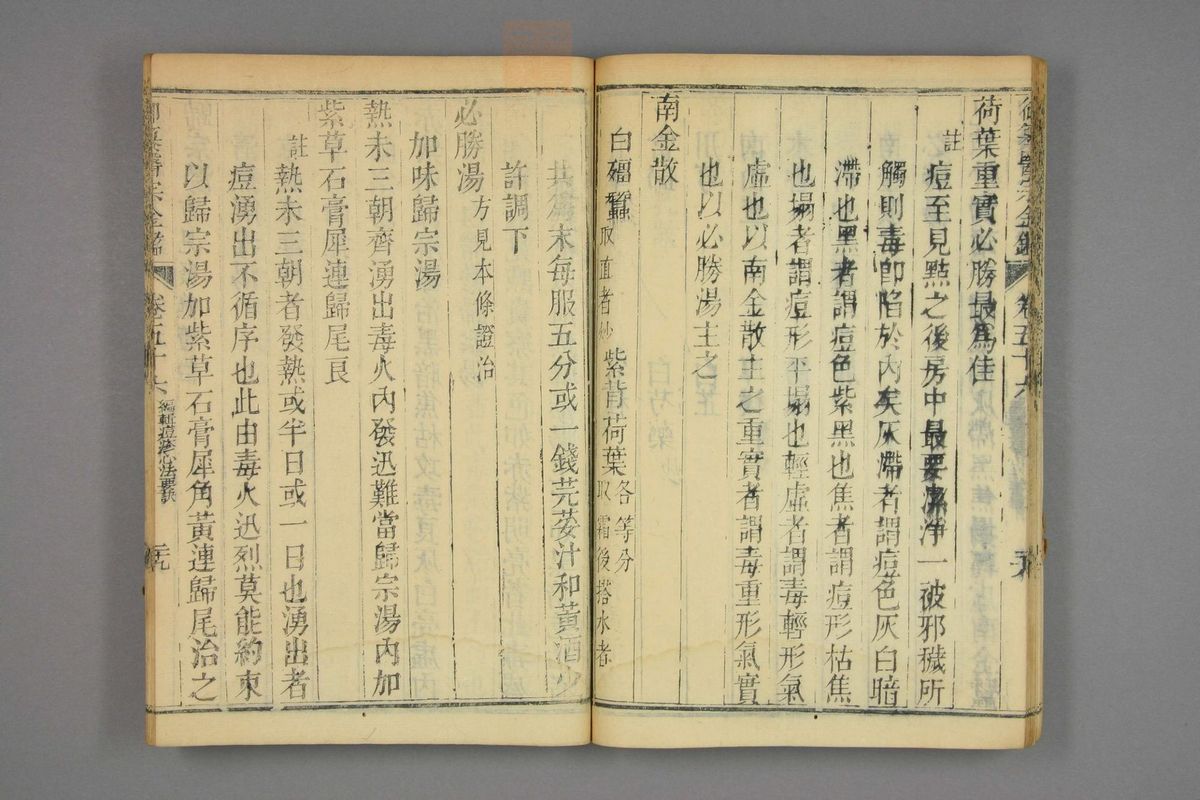 御纂醫宗金鑑 卷五十六
荷葉重實必勝最爲佳
註痘至見點之後房中最要潔淨一被邪穢所
觸則毒卽陷於內矣灰滯者謂痘色灰白暗
滯也黑者謂痘色紫黑也焦者謂痘形枯焦
也塌者謂痘形平塌也輕虛者謂毒輕形氣
虛也以南金散主之重實者謂毒重形氣實
也以必勝湯主之
南金散
白殭蠶取直者炒 紫背荷葉取霜後搭水者 各等分
共爲末每服五分或一錢芫荽汁和黃酒少
許調下
必勝湯方見本條證治
加味歸宗湯
熱未三朝齊湧出毒火內發迅難當歸宗湯內加
紫草石膏犀連歸尾良
註熱未三朝者發熱或半日或一日也湧出者
痘湧出不循序也此由毒火迅烈莫能約束
以歸宗湯加紫草石膏犀角黃連歸尾治之
御纂醫宗金鑑 卷五十六 編輯痘疹心法要訣 元